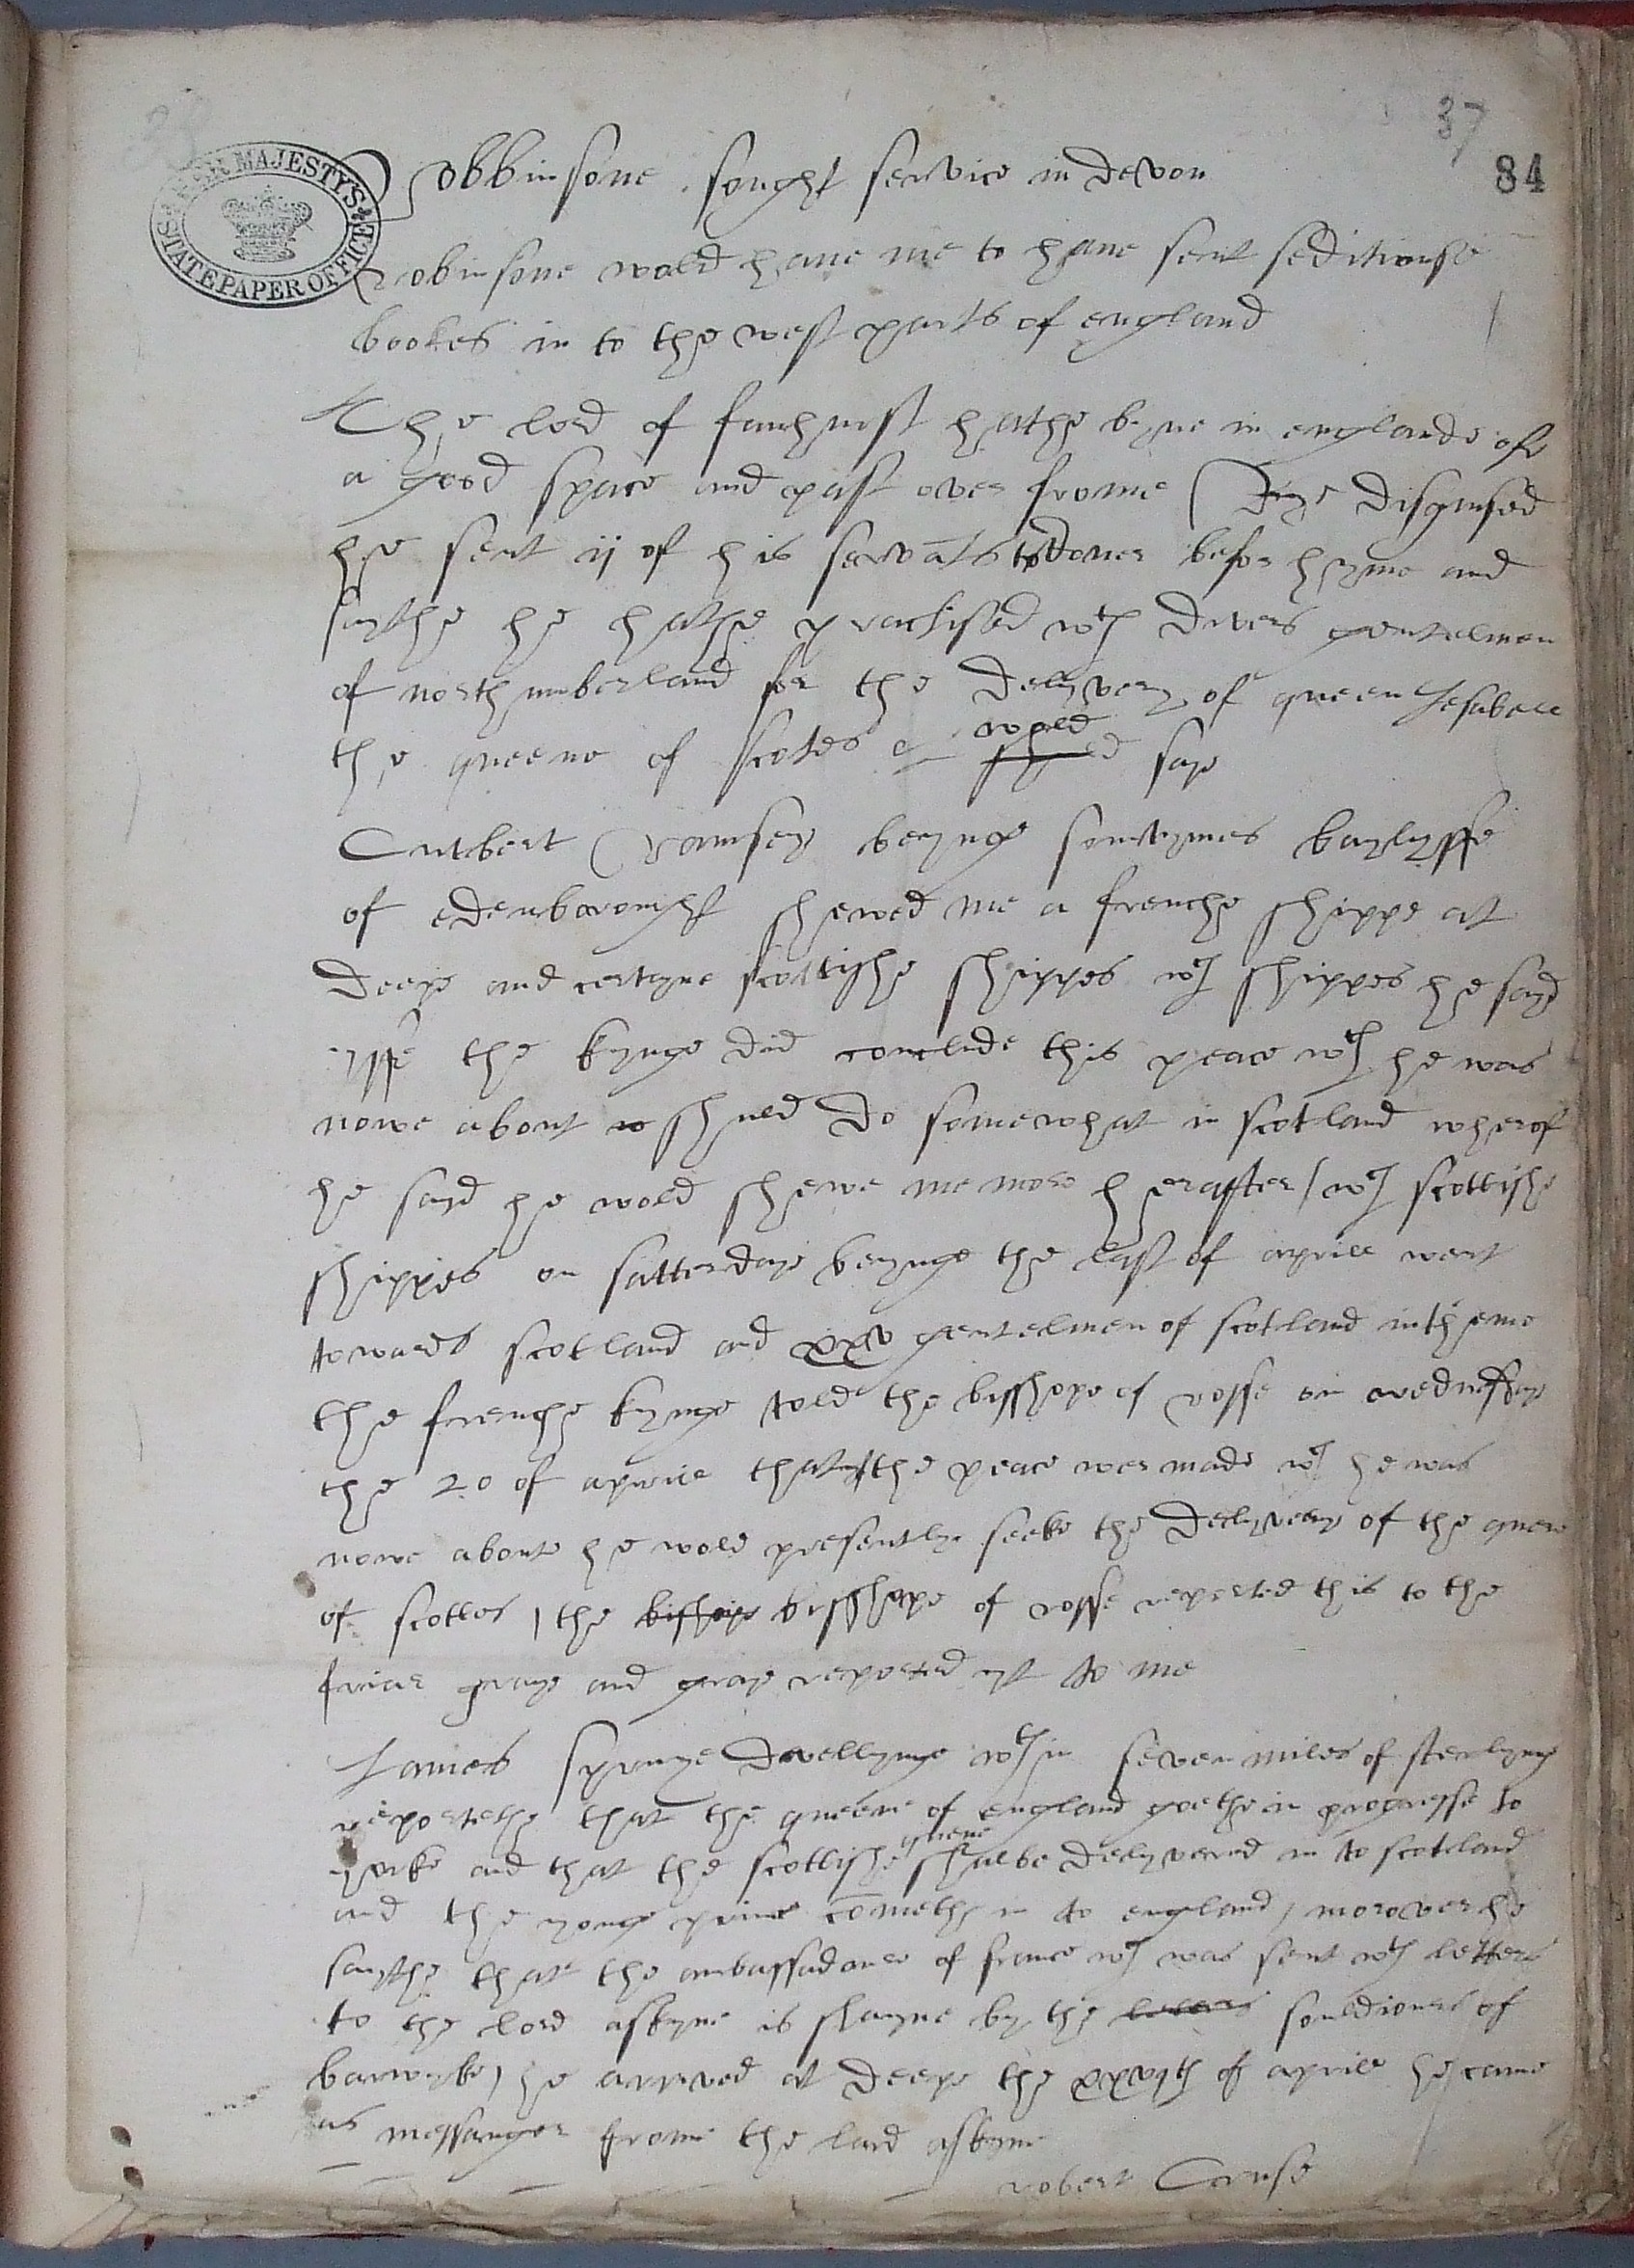 37
84
HER MAJESTY'S STATE PAPER OFFICE
Robbinsone sought service in devon
Robinsone wold have me to have sent seditiouse
bookes in to the west parts of england
The lord of farnhurst hathe byne in englande of
a good space and past over frome Rye disguised
he sent ij of his servāts to dover befor hyme and
saythe he hathe practissed wth divers gentelmen
of northumberland for the delyvery of queen Jesabell
the queene of scotes I wold say
Cutbert Ramsey beynge somtymes baylyffe
of edenbarought shewed me a frenche shippe at
deepe and certayne scottishe shippes wch shippes he sayd
yffe the kynge did conclude this peace wch he was
nowe about shuld do somewhat in scotland wherof
he sayd he wold shewe me more herafter / wch scottishe
shippes on satterdaye beynge the last of aprill went
towards scotland and xxv gentelmen of scotland in theme
the frenche kynge told the bisshope of rosse on wednesdaye
the 20 of aprill that yf the peace wer made wch he was
nowe aboute he wold presently seeke the delyvery of the quene
of scottes / the bisshope bisshope of rosse reported this to the
friar graye and graye reported yt to me
James spranye dwellynge wthin seven miles of sterlynge
reportethe that the queene of england goethe in progresse to
yorke and that the scottishe quene shalbe delyvered in to scotland
and the yonge prince cōmethe in to england / morover he
saythe that the ambassadoure of france wch was sent wth letters
to the lord askyne is slayne by the souldioures of
barwyke / he arryved at deepe the xxvjth of aprill he came
as messanger frome the lard askyne
robert Cruse